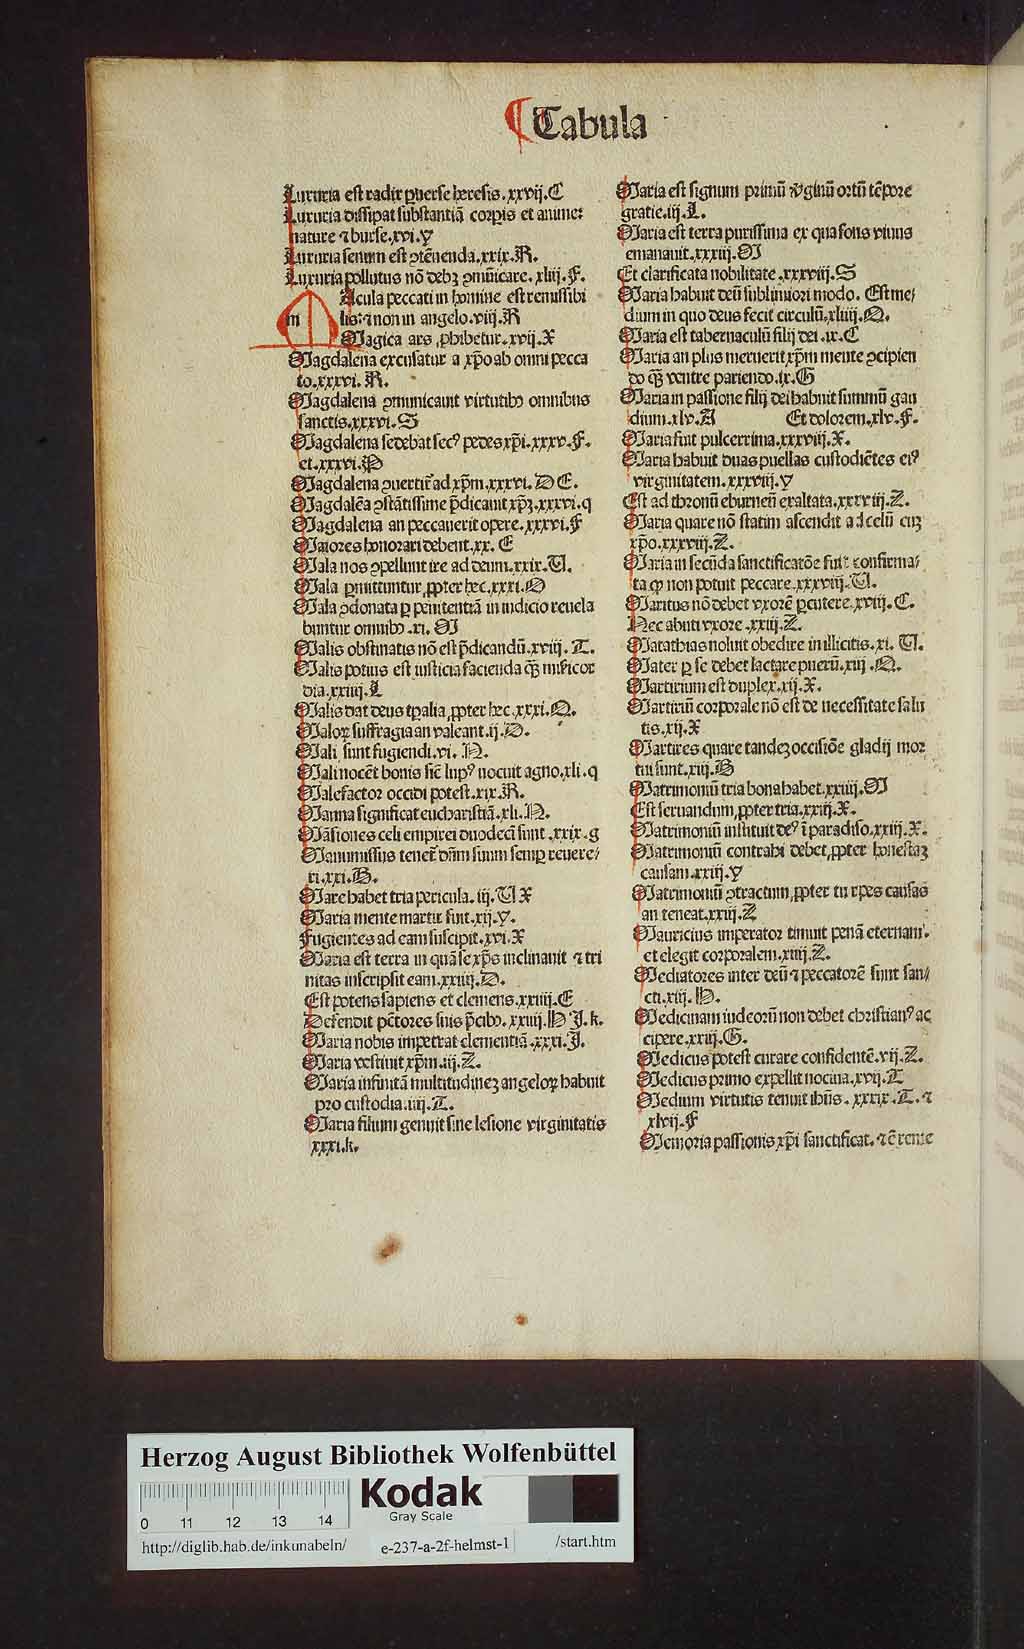 Tabula
Luxuria est radix ꝑuerse heresis.xxvij.C
Luxuria dissipat substantiā corꝑis et anime:
nature ⁊ burse.xvi.Y
Luxuria senum est ꝯtēnenda.xxix.R.
Luxuria pollutus nō debꝫ ꝯmūicare.xliij.F.
m Acula peccati in homine est remissibi
lis:⁊ non in angelo.viij.R
Magica ars ꝓhibetur.xvij.X
Magdalena excusatur a xp̄o ab omni pecca
to.xxxvi.R.
Magdalena ꝯmunicauit virtutibꝰ omnibus
sanctis.xxxvi.S
Magdalena sedebat secꝰ pedes xp̄i.xxxv.F.
et.xxxvi.P
Magdalena ꝯuertit̄ ad xp̄m.xxxvi.D E.
Magdalēa ꝯstātissime p̄dicauit xp̄ꝫ.xxxvi.q
Magdalena an peccauerit opere.xxxvi.F
Maiores honorari debent.xx.E
Mala nos ꝯpellunt ire ad deum.xxix.V.
Mala ꝑmittuntur ꝓpter hec.xxxi.O
Mala ꝯdonata ꝑ penitentiā in iudicio reuela
buntur omnibꝰ.xi.M
Malis obstinatis nō est p̄dicandū.xviij.T.
Malis potius est iusticia facienda q̄ꝫ misericor
dia.xxiiij.L
Malis dat deus tp̄alia ꝓpter hec.xxxi.Q.
Maloꝝ suffragia an valeant.ij.D.
Mali sunt fugiendi.vi.N.
Mali nocēt bonis sic̄ lupꝰ nocuit agno.xli.q
Malefactor occidi potest.xix.R.
Manna significat eucharistiā.xli.N.
Māsiones celi empirei duodeci sunt.xxix.g
Manumissus tenet̄ dn̄m suum semꝑ reuere/
ri.xxi.B.
Mare habet tria pericula.iij.V X
Maria mente martir fuit.xij.Y.
Fugientes ad eam suscipit.xvi.X
Maria est terra in quā se xp̄s inclinauit ⁊ tri
nitas inscripsit eam.xxiiij.D.
Est potens sapiens et clemens.xxiiij.E
Defendit pc̄tores suis p̄cibꝰ.xxiiij.H J.k.
Maria nobis impetrat clementiā.xxxi.J.
Maria vestiuit xp̄m.iij.Z.
Maria infinitā multitudinez angeloꝝ habuit
pro custodia.iiij.T.
Maria filium genuit sine lesione virginitatis
xxxi.k.
Maria est signum primū ꝟginū ortū tēpore
gratie.iij.L.
Maria est terra purissima ex qua fons viuus
emanauit.xxxiij.M
Et clarificata nobilitate.xxxviij.S
Maria habuit deū sublimiori modo. Est me/
dium in quo deus fecit circulū.xliiij.Q.
Maria est tabernaculū filij dei.ix.C
Maria an plus meruerit xp̄m mente ꝯcipien
do q̄ꝫ ventre pariendo.ix.G
Maria in passione filij dei habuit summū gau
dium.xlv.A Et dolorem.xlv.F.
Maria fuit pulcerrima.xxxviij.X.
Maria habuit duas puellas custodiētes eiꝰ
virginitatem.xxxviij.Y
Est ad thronū eburneū exaltata.xxxviij.Z.
Maria quare nō statim ascendit ad celū cuꝫ
xp̄o.xxxviij.Z.
Maria in secūda sanctificatōe fuit confirma/
ta ꝙ non potuit peccare.xxxviij.V.
Maritus nō debet vxorē ꝑcutere.xviij.C.
Nec abuti vxore.xxiij.Z.
Matathias noluit obedire in illicitis.xi.V.
Mater ꝑ se debet lactare puerū.xiij.Q.
Martirium est duplex.xij.X.
Martiriū corporale nō est de necessitate salu
tis.xij.X
Martires quare tandeꝫ occisiōe gladij mor
tui sunt.xiij.B
Matrimoniū tria bona habet.xxiiij.M
Est seruandum ꝓpter tria.xxiij.X.
Matrimoniū instituit deꝰ ī paradiso.xxiij.X.
Matrimoniū contrahi debet ꝓpter honestaꝫ
causam.xxiij.Y
Matrimoniū ꝯtractum ꝓpter turpes causas
an teneat.xxiij.Z
Mauricius imperator timuit penā eternam.
et elegit corporalem.xiiij.Z.
Mediatores inter deū ⁊ peccatorē sunt san/
cti.xiij.H.
Medicinam iudeorū non debet christianꝰ ac
cipere.xxiij.G.
Medicus potest curare confidentē.vij.Z.
Medicus primo expellit nociua.xvij.T
Medium virtutis tenuit ihūs.xxxix.T.⁊
xlvij.F
Memoria passionis xp̄i sanctificat.
Herzog August Bibliothek Wolfenbüttel
Kodak
Gray Scale
0 11 12 13 14
http://diglib.hab.de/inkunabeln/ e-237-a-2f-helmst-1 /start.htm